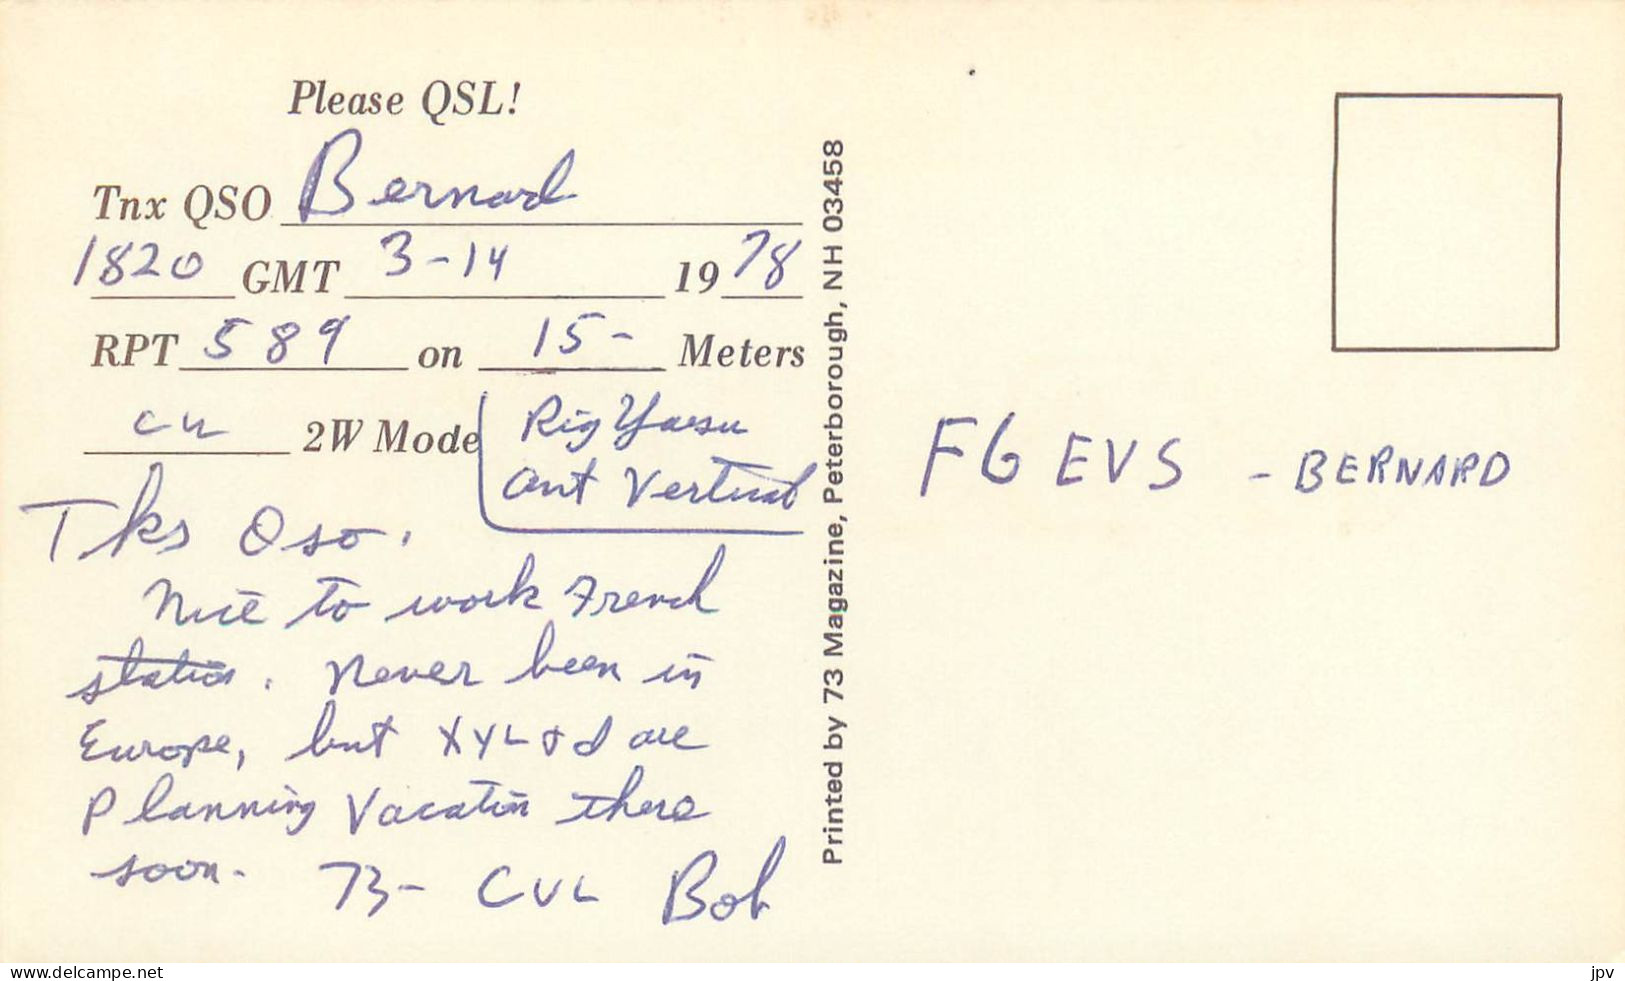 Please QSL!
Tnx QSO Bernard
1820 GMT 3-14 1978
RPT 589 on 15- Meters
cw 2W Mode
Rig Yaesu
ant Vertical
Tks Qso.
Nice to work French
station. Never been in
Europe, but XYL & I are
Planning Vacation there
soon. 73- CUL Bob
Printed by 73 Magazine, Peterborough, NH 03458
F6 EVS - BERNARD
www.delcampe.net
jpv